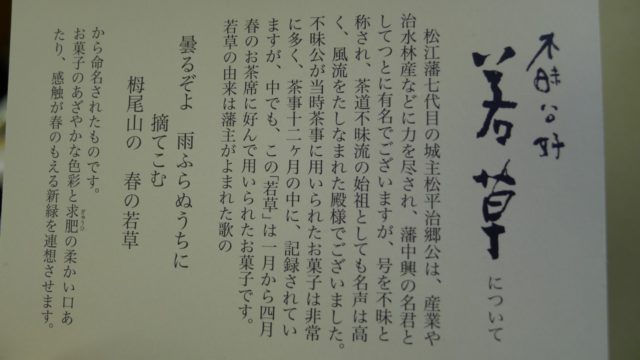 不昧公好
若草について
松江藩七代目の城主松平治郷公は、産業や
治水林産などに力を尽され、藩中興の名君と
してつとに有名でございますが、号を不昧と
称され、茶道不昧流の始祖としても名声は高
く、風流をたしなまれた殿様でございました。
不昧公が当時茶事に用いられたお菓子は非常
に多く、茶事十二ヶ月の中に、記録されてい
ますが、中でも、この「若草」は一月から四月
春のお茶席に好んで用いられたお菓子です。
若草の由来は藩主がよまれた歌の
曇るぞよ 雨ふらぬうちに
摘てこむ
栂尾山の 春の若草
から命名されたものです。
お菓子のあざやかな色彩と求肥の柔かい口あ
たり、感触が春のもえる新緑を連想させます。